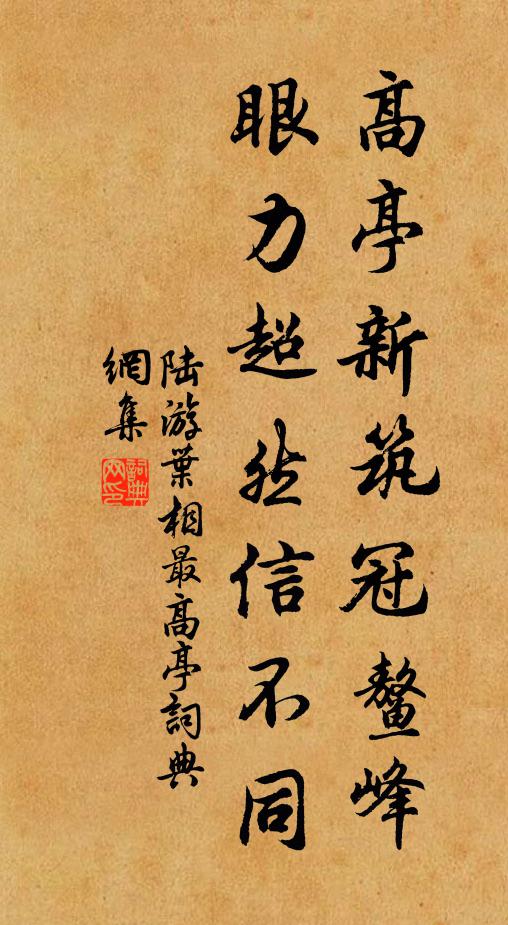 高亭新筑冠鳌峰
眼力超然信不同
陆游葉相最高亭詞典
網集
詞典
网印